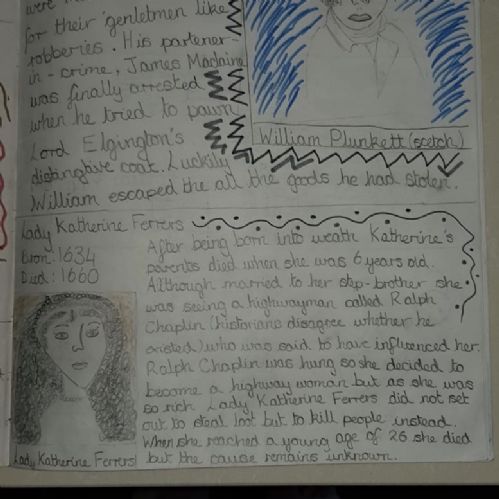 were
for their 'genletmen like'
robberies. His partener-
in-crime, James Maclaine
was finally arrested
when he tried to pawn
Lord Elgington's
distingtive coat. Luckily
William escaped the all the goods he had stolen.
William Plunkett (scetch)
Lady Katherine Ferrers
Born: 1634
Died: 1660
After being born into wealth Katherine's
parents died when she was 6 years old.
Although married to her step-brother she
was seeing a highwayman called Ralph
Chaplin (historians disagree whether he
existed) who was said to have influenced her.
Ralph Chaplin was hung so she decided to
become a highway woman but as she was
so rich Lady Katherine Ferrers did not set
out to steal loot but to kill people instead.
When she reached a young age of 26 she died
but the cause remains unknown.
Lady Katherine Ferrers